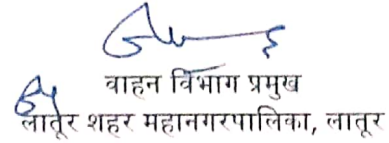 वाहन विभाग प्रमुख
लातूर शहर महानगरपालिका, लातूर